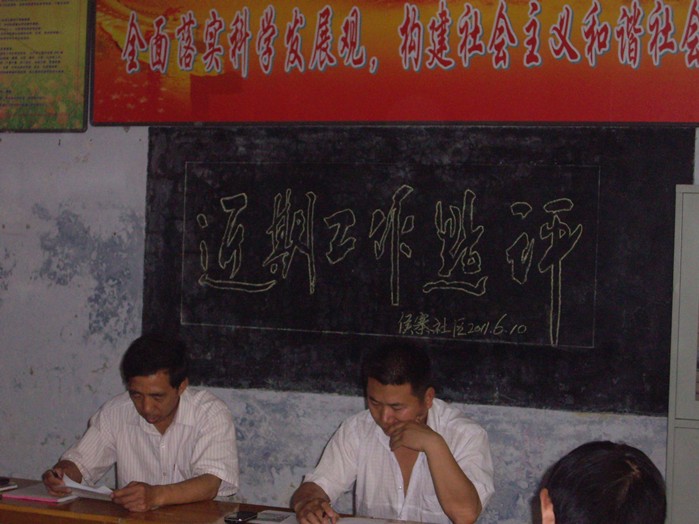 全面落实科学发展观，构建社会主义和谐社会
近期工作點评
侯寨社区2011.6.10